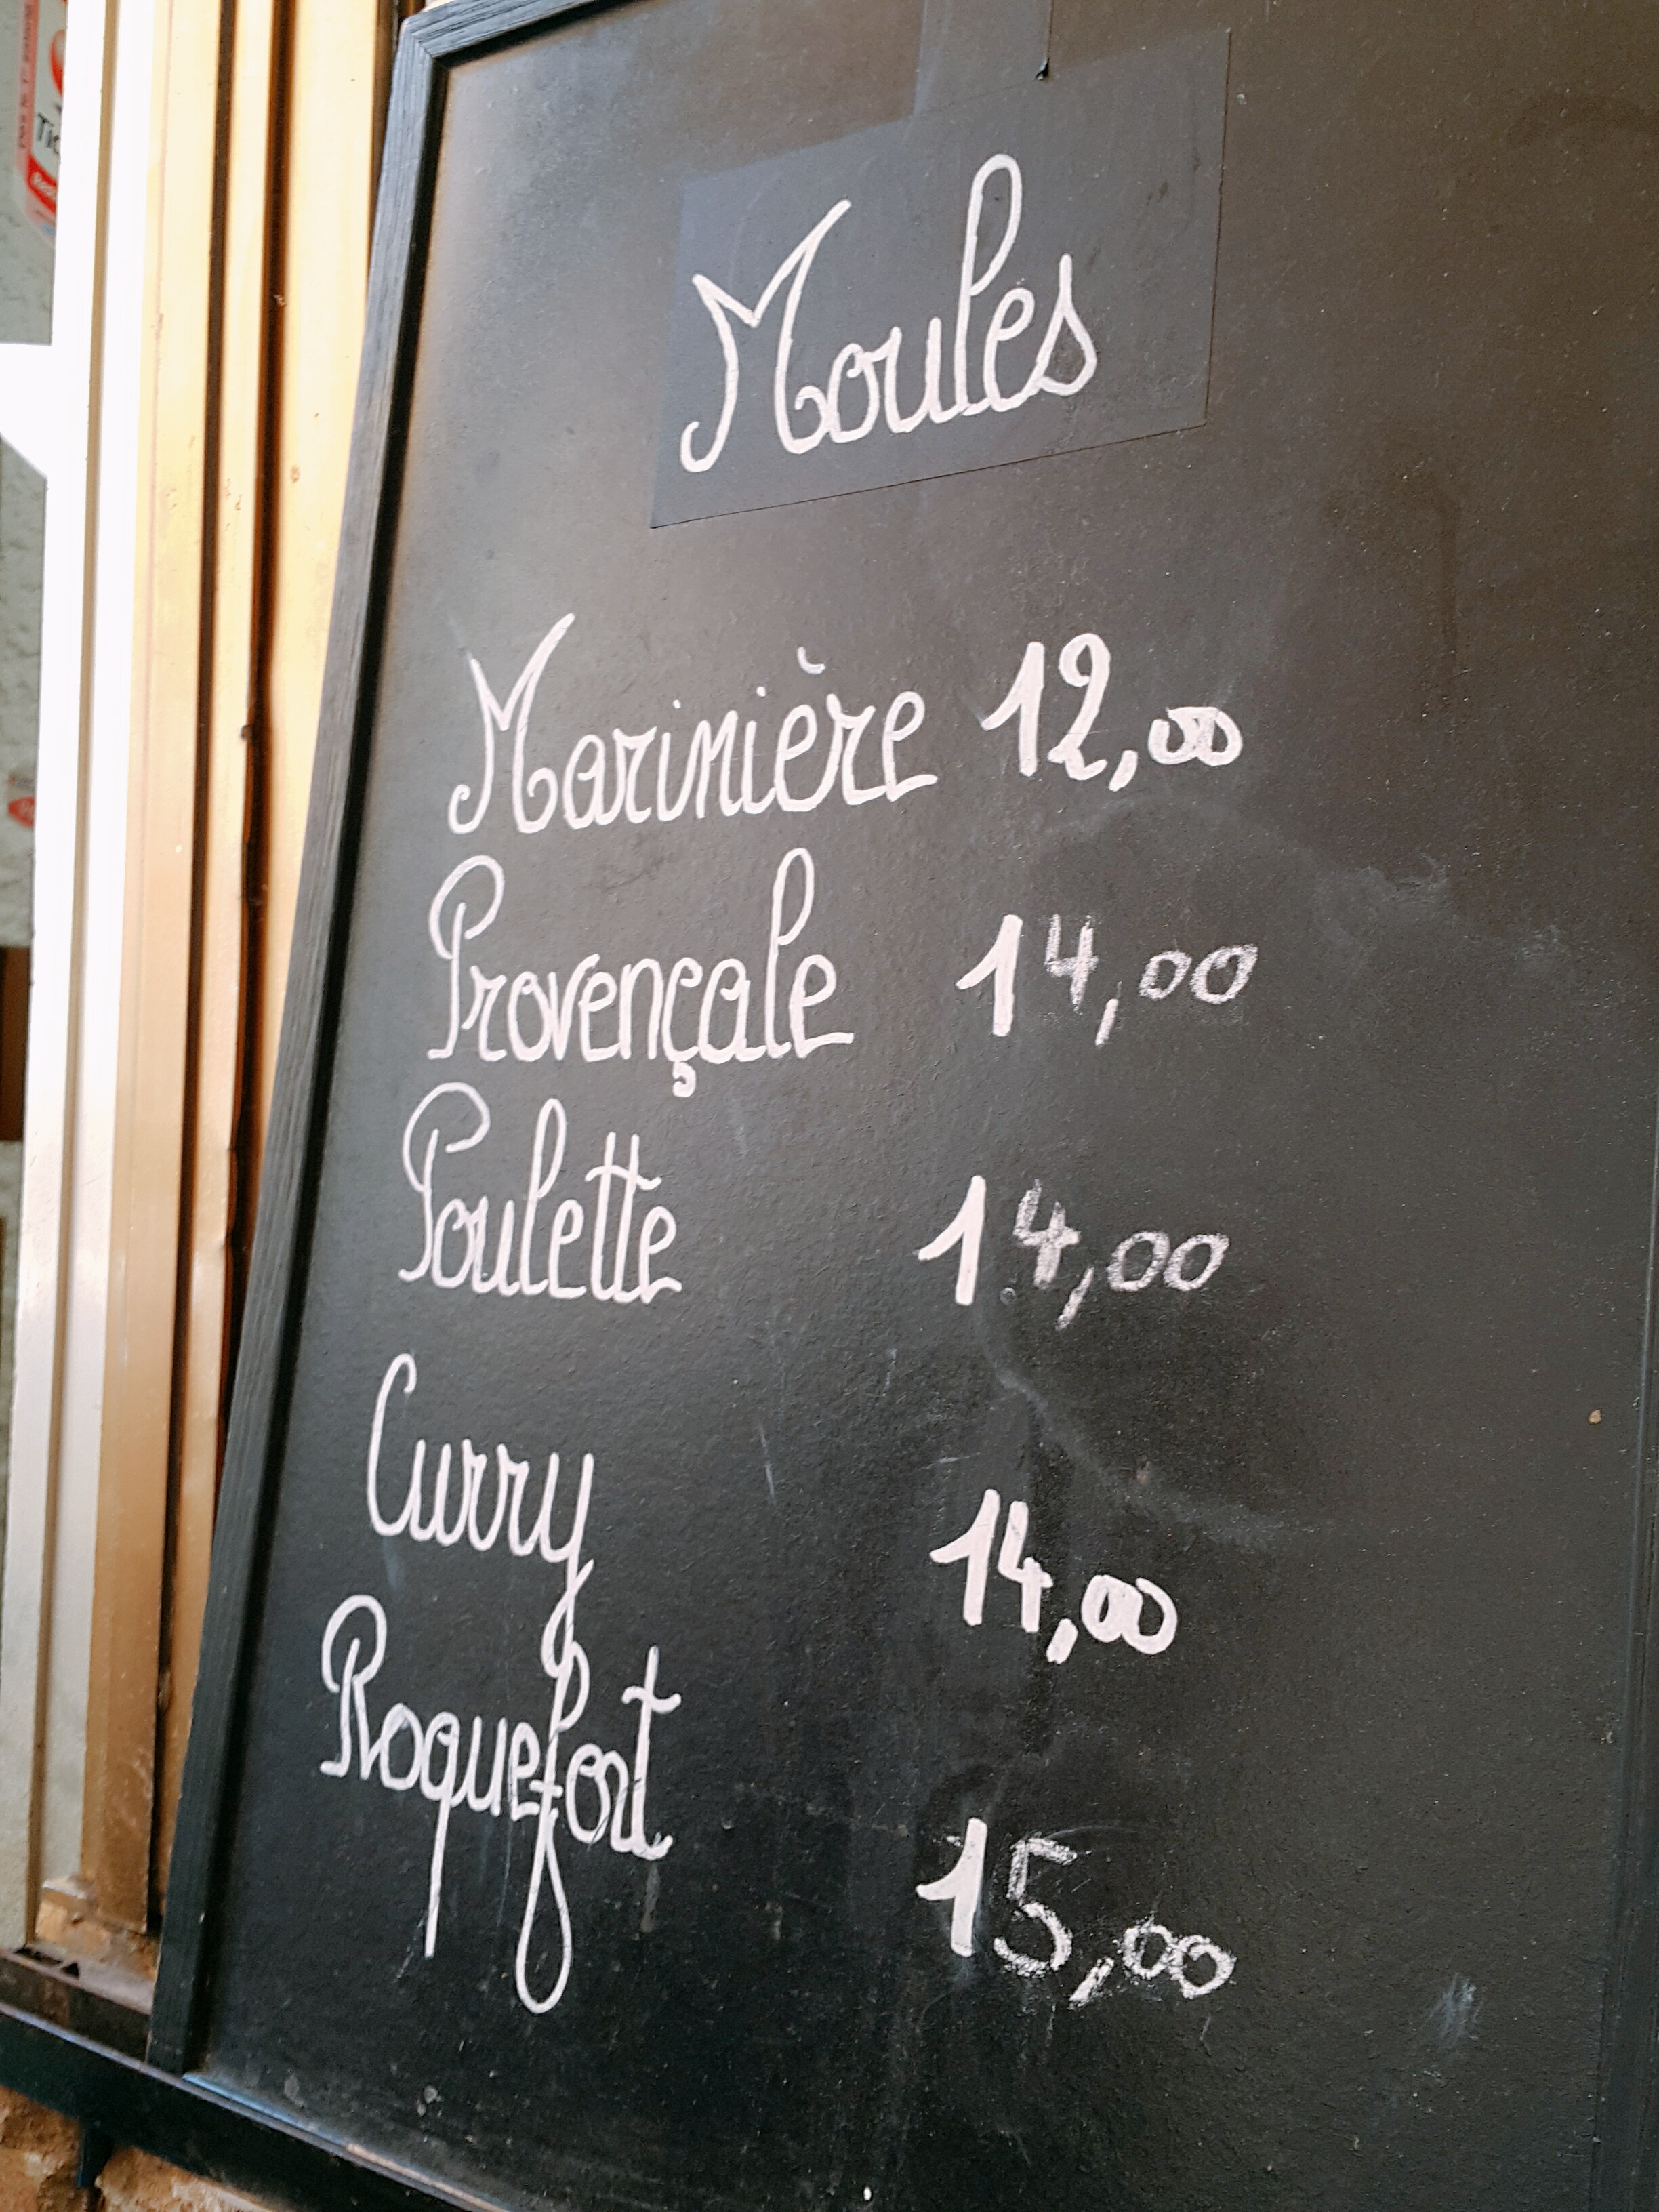 Moules
Marinière 12,00
Provençale 14,00
Poulette 14,00
Curry 14,00
Roquefort 15,00